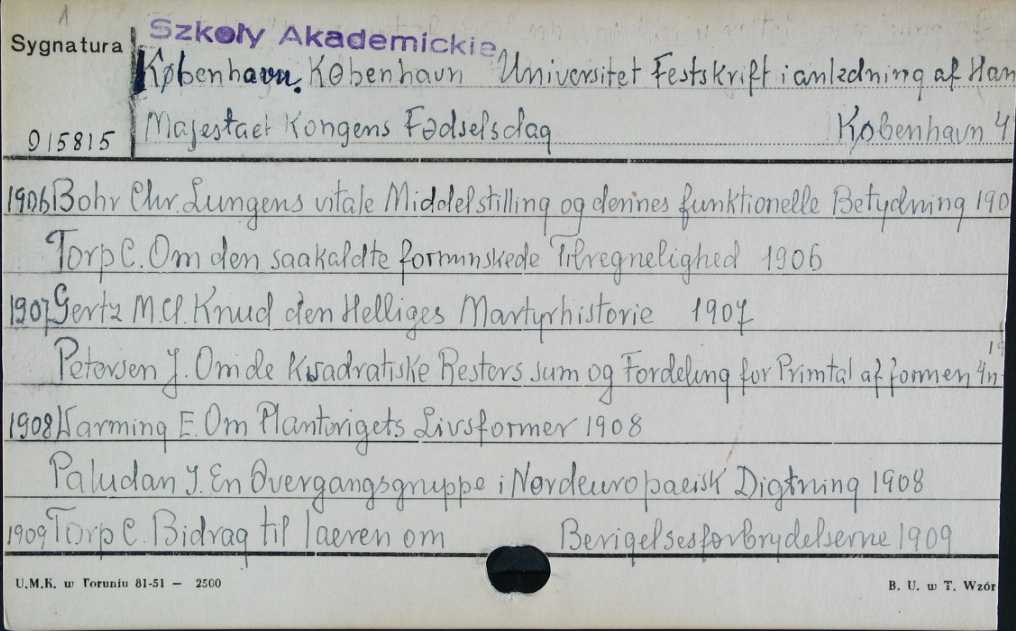 1
Szkoły Akademickie
Sygnatura
København. København Universitet Festskrift i anledning af Han
015815 Majestaet Kongens Fødselsdag København 4
1906 Bohr Chr. Lungens vitale Middelstilling og dennes funktionelle Betydning 190
Torp C. Om den saakaldte forminskede Tilregnelighed 1906
1907 Gertz M.Cl. Knud den Helliges Martyrhistorie 1907
Petersen J. Om de Kvadratiske Resters sum og Fordeling for Primtal af formen 4n
1908 Warming E. Om Planterigets Livsformer 1908
Paludan J. En Overgangsgruppe i Nordeuropaeisk Digtning 1908
1909 Torp C. Bidrag til laeren om Berigelsesforbrydelserne 1909
U.M.K. w Toruniu 81-51 — 2500 B. U. w T. Wzór